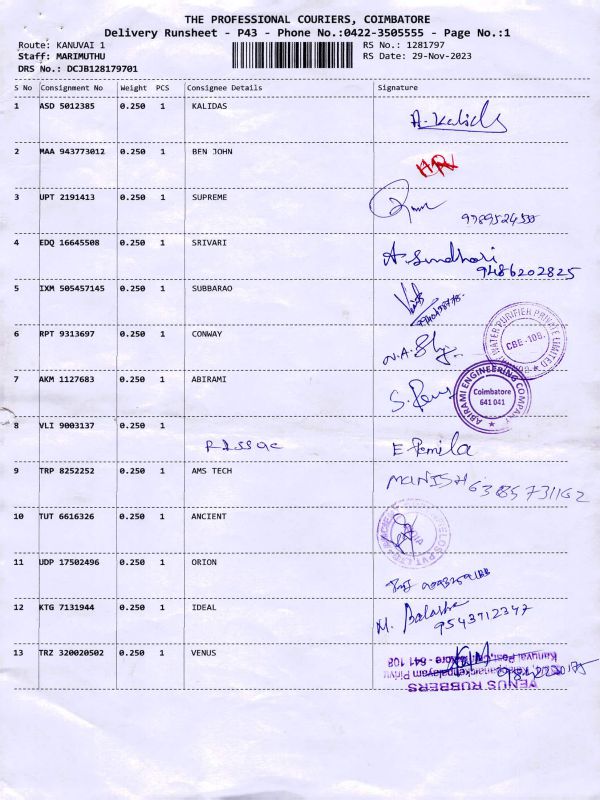 THE PROFESSIONAL COURIERS, COIMBATORE
Delivery Runsheet - P43 - Phone No.:0422-3505555 - Page No.:1
Route: KANUVAI 1 RS No.: 1281797
Staff: MARIMUTHU RS Date: 29-Nov-2023
DRS No.: DCJB128179701
S No Consignment No Weight PCS Consignee Details Signature
1 ASD 5012385 0.250 1 KALIDAS A. Kalidas
2 MAA 943773012 0.250 1 BEN JOHN
3 UPT 2191413 0.250 1 SUPREME
4 EDQ 16645508 0.250 1 SRIVARI A. Sundhari
9486202825
5 IXM 505457145 0.250 1 SUBBARAO
6 RPT 9313697 0.250 1 CONWAY
WATER PURIFIER PRIVATE LIMITED
CBE -108.
7 AKM 1127683 0.250 1 ABIRAMI
ABIRAMI ENGINEERING COMPANY
Coimbatore
641 041
8 VLI 9003137 0.250 1 E Pemila
9 TRP 8252252 0.250 1 AMS TECH MANISH
10 TUT 6616326 0.250 1 ANCIENT
11 UDP 17502496 0.250 1 ORION
12 KTG 7131944 0.250 1 IDEAL M.
9543712347
13 TRZ 320020502 0.250 1 VENUS
VENUS RUBBERS
Kanuvai Post, - 641 108